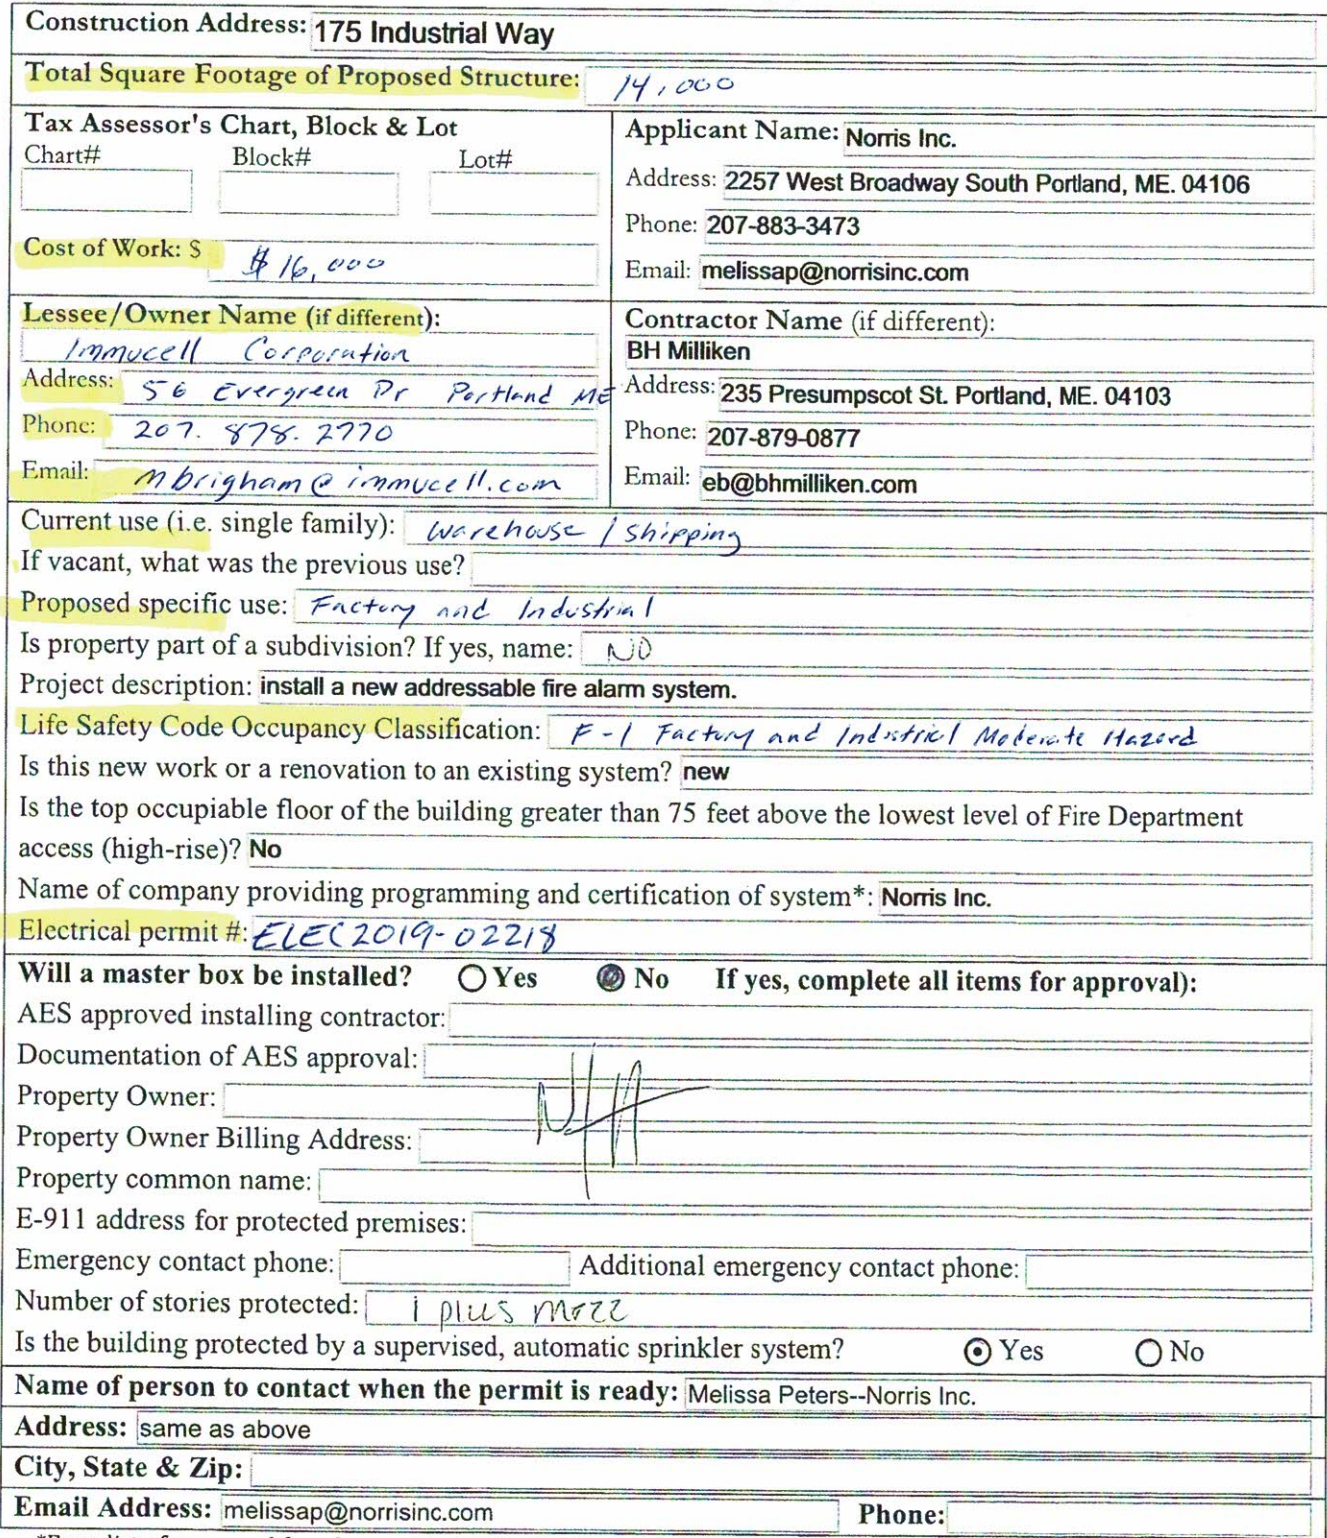 Construction Address: 175 Industrial Way
Total Square Footage of Proposed Structure: 14,000
Tax Assessor's Chart, Block & Lot
Chart# Block# Lot#
Cost of Work: $ $16,000
Applicant Name: Norris Inc.
Address: 2257 West Broadway South Portland, ME. 04106
Phone: 207-883-3473
Email: melissap@norrisinc.com
Lessee/Owner Name (if different):
Immucell Corporation
Address: 56 Evergreen Dr Portland ME
Phone: 207. 878. 2770
Email: mbrigham@immucell.com
Contractor Name (if different):
BH Milliken
Address: 235 Presumpscot St. Portland, ME. 04103
Phone: 207-879-0877
Email: eb@bhmilliken.com
Current use (i.e. single family): Warehouse / Shipping
If vacant, what was the previous use?
Proposed specific use: Factory and Industrial
Is property part of a subdivision? If yes, name: NO
Project description: install a new addressable fire alarm system.
Life Safety Code Occupancy Classification: F-1 Factory and Industrial Moderate Hazard
Is this new work or a renovation to an existing system? new
Is the top occupiable floor of the building greater than 75 feet above the lowest level of Fire Department
access (high-rise)? No
Name of company providing programming and certification of system*: Norris Inc.
Electrical permit #: ELEC2019-02218
Will a master box be installed? Yes No If yes, complete all items for approval):
AES approved installing contractor:
Documentation of AES approval:
Property Owner:
N/A
Property Owner Billing Address:
Property common name:
E-911 address for protected premises:
Emergency contact phone: Additional emergency contact phone:
Number of stories protected: 1 plus mezz
Is the building protected by a supervised, automatic sprinkler system? Yes No
Name of person to contact when the permit is ready: Melissa Peters--Norris Inc.
Address: same as above
City, State & Zip:
Email Address: melissap@norrisinc.com Phone: